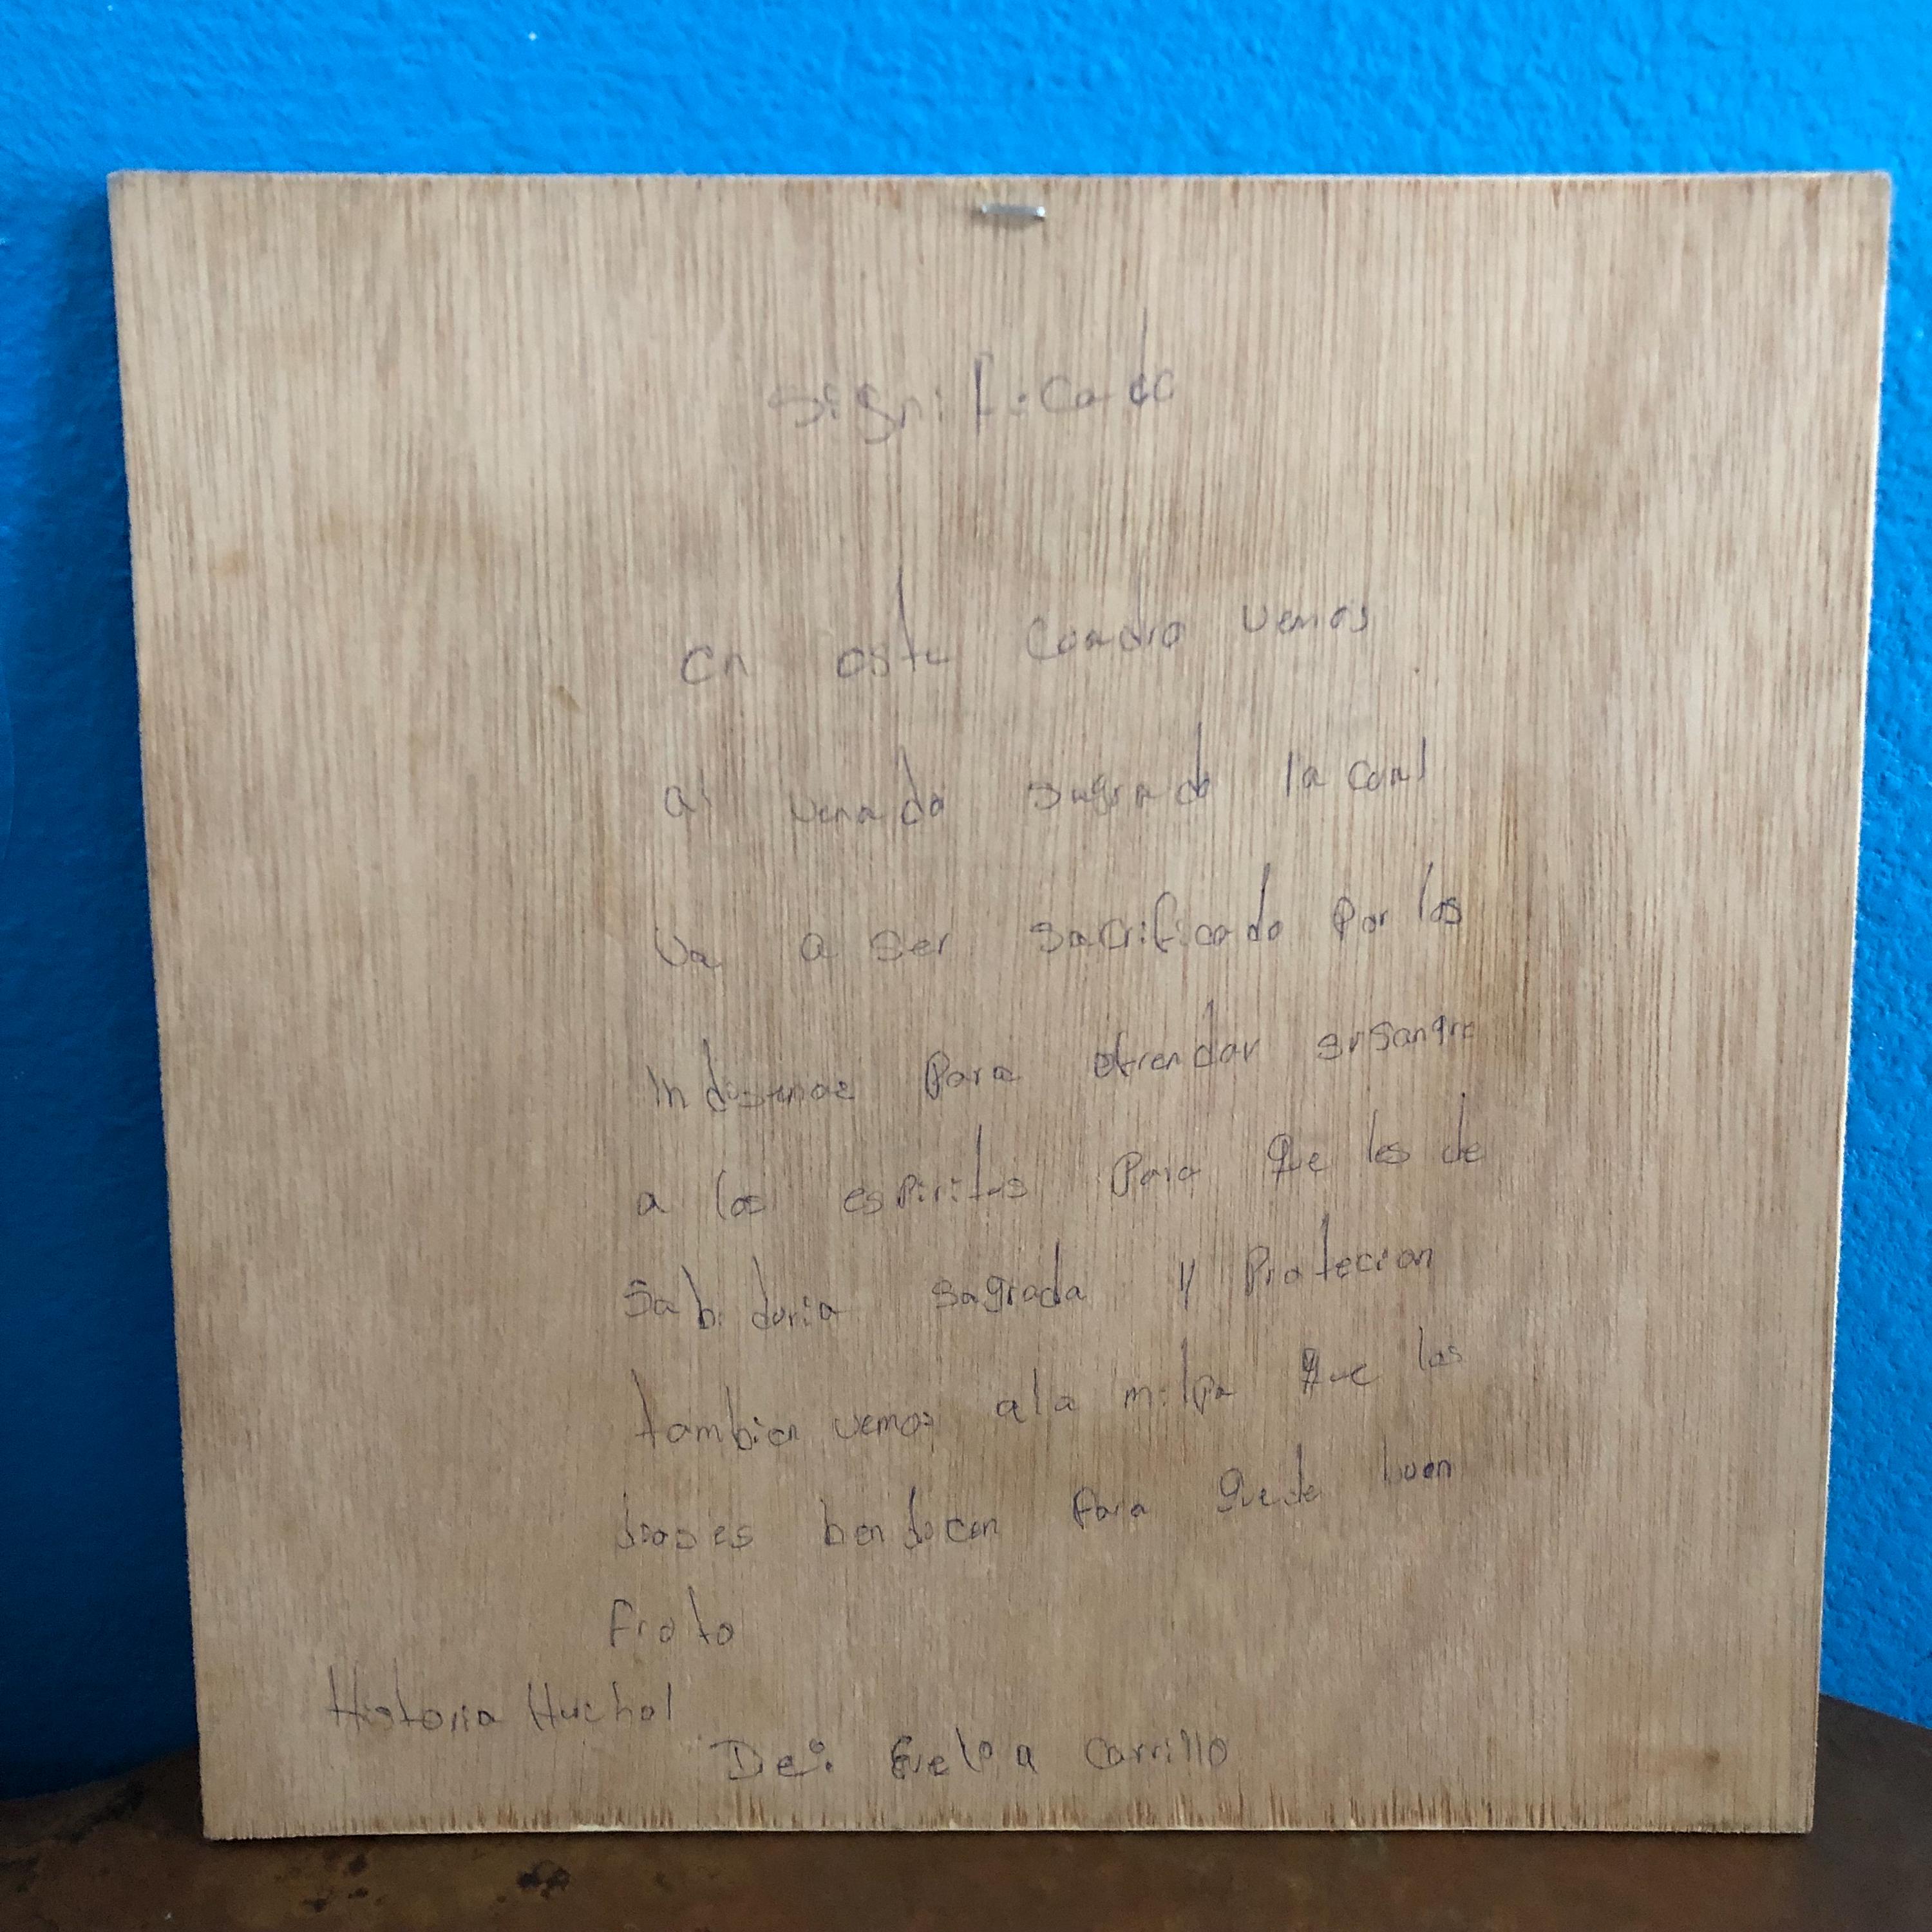 Significado
en este Cuadro vemos
al venado sagrado la cual
va a ser sacrificado Por los
indigenas Para ofrendar su sangre
a los espiritus Para que les de
Sabiduria sagrada y Protecion
tambien vemos ala milpa que los
dioses bendicen Para que de buen
Fruto
Historia Huichol
De: Evelia Carrillo